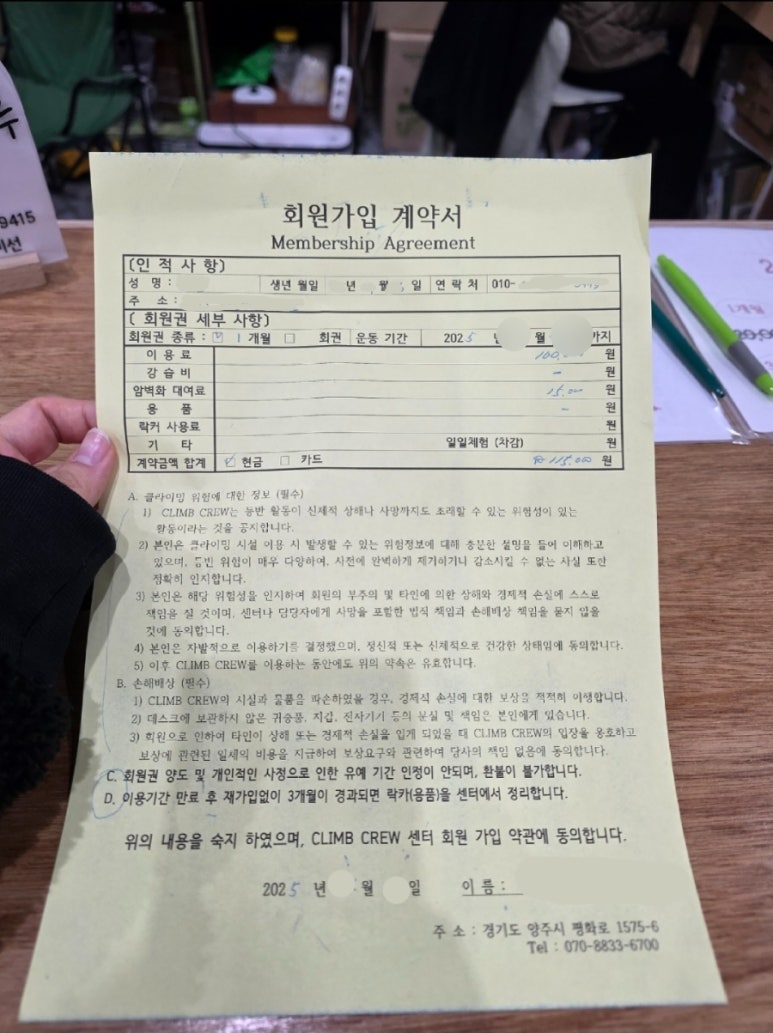 9415
회원가입 계약서
Membership Agreement
[인적사항]
성 명: 생년월일 년 월 일 연락처 010-
주 소:
[ 회원권 세부 사항]
회원권 종류 : 1 개월 회권 운동 기간 2025 년 월 까지
이용료 100, 원
강습비 - 원
암벽화 대여료 15.00 원
용 품 - 원
락커 사용료 원
기 타 일일체험 (차감) 원
계약금액 합계 현금 카드 ₩ 115.000 원
A. 클라이밍 위험에 대한 정보 (필수)
1) CLIMB CREW는 등반 활동이 신체적 상해나 사망까지도 초래할 수 있는 위험성이 있는
활동이라는 것을 공지합니다.
2) 본인은 클라이밍 시설 이용 시 발생할 수 있는 위험정보에 대해 충분한 설명을 들어 이해하고
있으며, 등반 위험이 매우 다양하여, 사전에 완벽하게 제거하거나 감소시킬 수 없는 사실 또한
정확히 인지합니다.
3) 본인은 해당 위험성을 인지하여 회원의 부주의 및 타인에 의한 상해와 경제적 손실에 스스로
책임을 질 것이며, 센터나 담당자에게 사망을 포함한 법적 책임과 손해배상 책임을 묻지 않을
것에 동의합니다.
4) 본인은 자발적으로 이용하기를 결정했으며, 정신적 또는 신체적으로 건강한 상태임에 동의합니다.
5) 이후 CLIMB CREW를 이용하는 동안에도 위의 약속은 유효합니다.
B. 손해배상 (필수)
1) CLIMB CREW의 시설과 물품을 파손하였을 경우, 경제적 손실에 대한 보상을 적적히 이행합니다.
2) 데스크에 보관하지 않은 귀중품, 지갑, 전자기기 등의 분실 및 책임은 본인에게 있습니다.
3) 회원으로 인하여 타인이 상해 또는 경제적 손실을 입게 되었을 때 CLIMB CREW의 입장을 옹호하고
보상에 관련된 일체의 비용을 지급하여 보상요구와 관련하여 당사의 책임 없음에 동의합니다.
C. 회원권 양도 및 개인적인 사정으로 인한 유예 기간 인정이 안되며, 환불이 불가합니다.
D. 이용기간 만료 후 재가입없이 3개월이 경과되면 락카(용품)을 센터에서 정리합니다.
위의 내용을 숙지 하였으며, CLIMB CREW 센터 회원 가입 약관에 동의합니다.
2025 년 월 일 이름 :
주 소 : 경기도 양주시 평화로 1575-6
Tel : 070-8833-6700
1개월